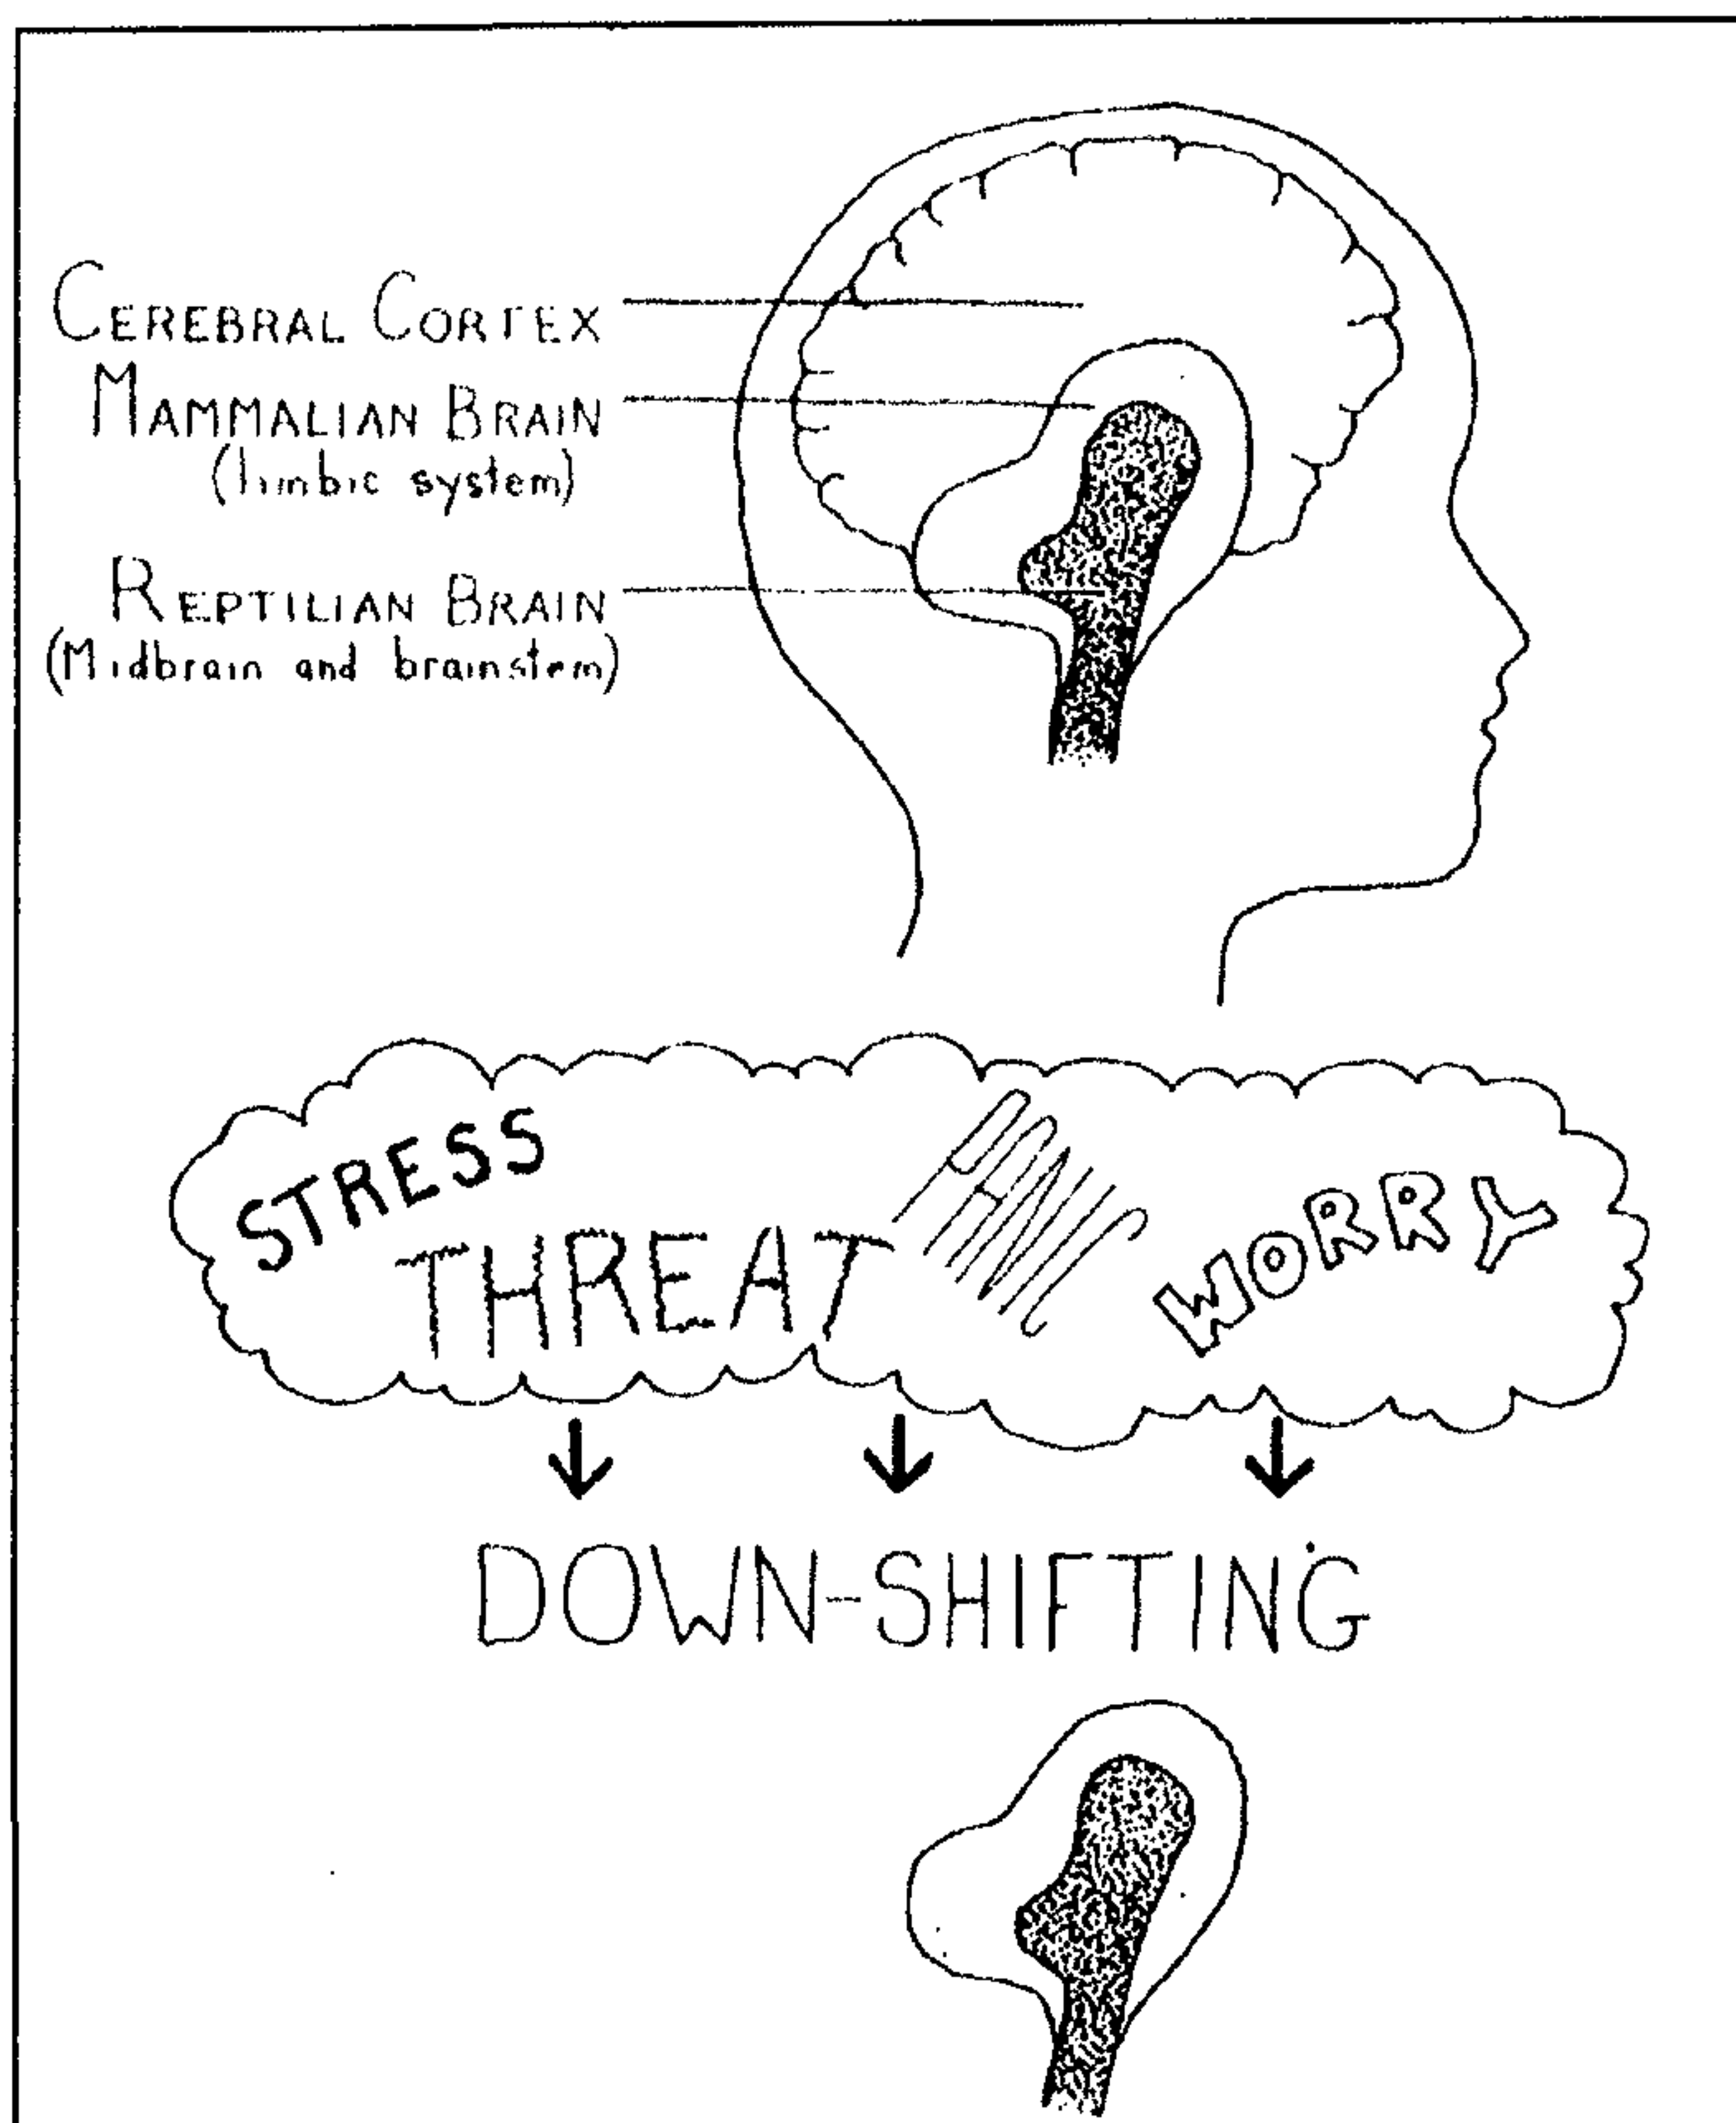 CEREBRAL CORTEX
MAMMALIAN BRAIN
(limbic system)
REPTILIAN BRAIN
(Midbrain and brainstem)
STRESS
THREAT
PANIC
WORRY
DOWN-SHIFTING